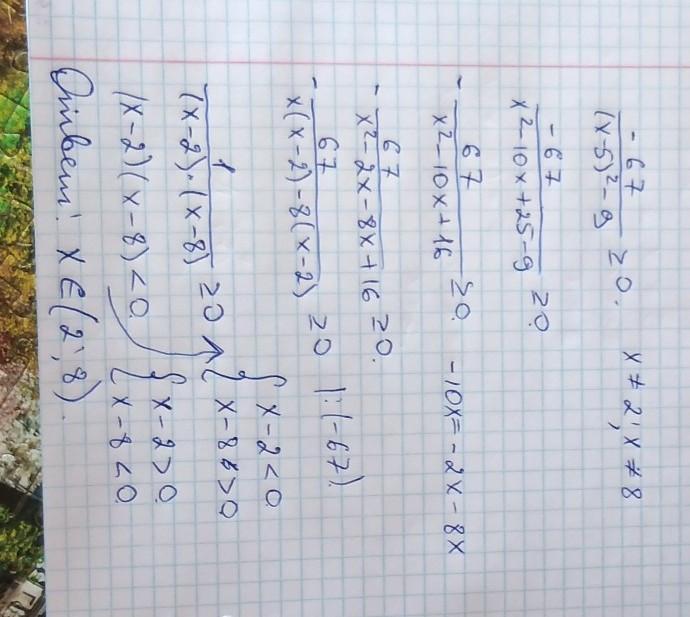 -67/((x-5)²-9) ≥0. x≠2; x≠8
-67/(x²-10x+25-9) ≥0
-67/(x²-10x+16) ≥0. -10x=-2x-8x
-67/(x²-2x-8x+16) ≥0.
-67/(x(x-2)-8(x-2)) ≥0 |:(-67)
1/((x-2)·(x-8)) ≥0 { x-2<0 x-8>0
(x-2)(x-8)<0 { x-2>0 x-8<0
Ответ: x∈(2;8).